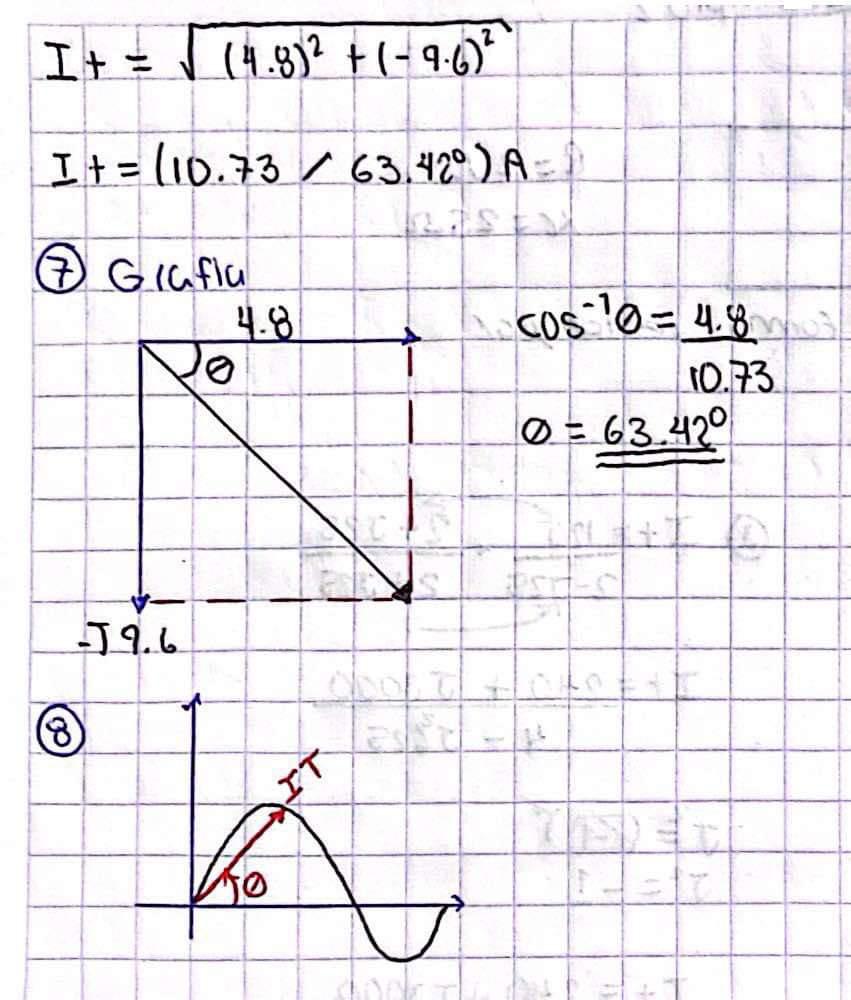 I+ = √(4.8)² + (-9.6)²
I+ = (10.73 / 63.42°) A
⑦ Grafia
4.8
θ
-J 9.6
cos⁻¹θ = 4.8
10.73
θ = 63.42°
⑧
IT
θ